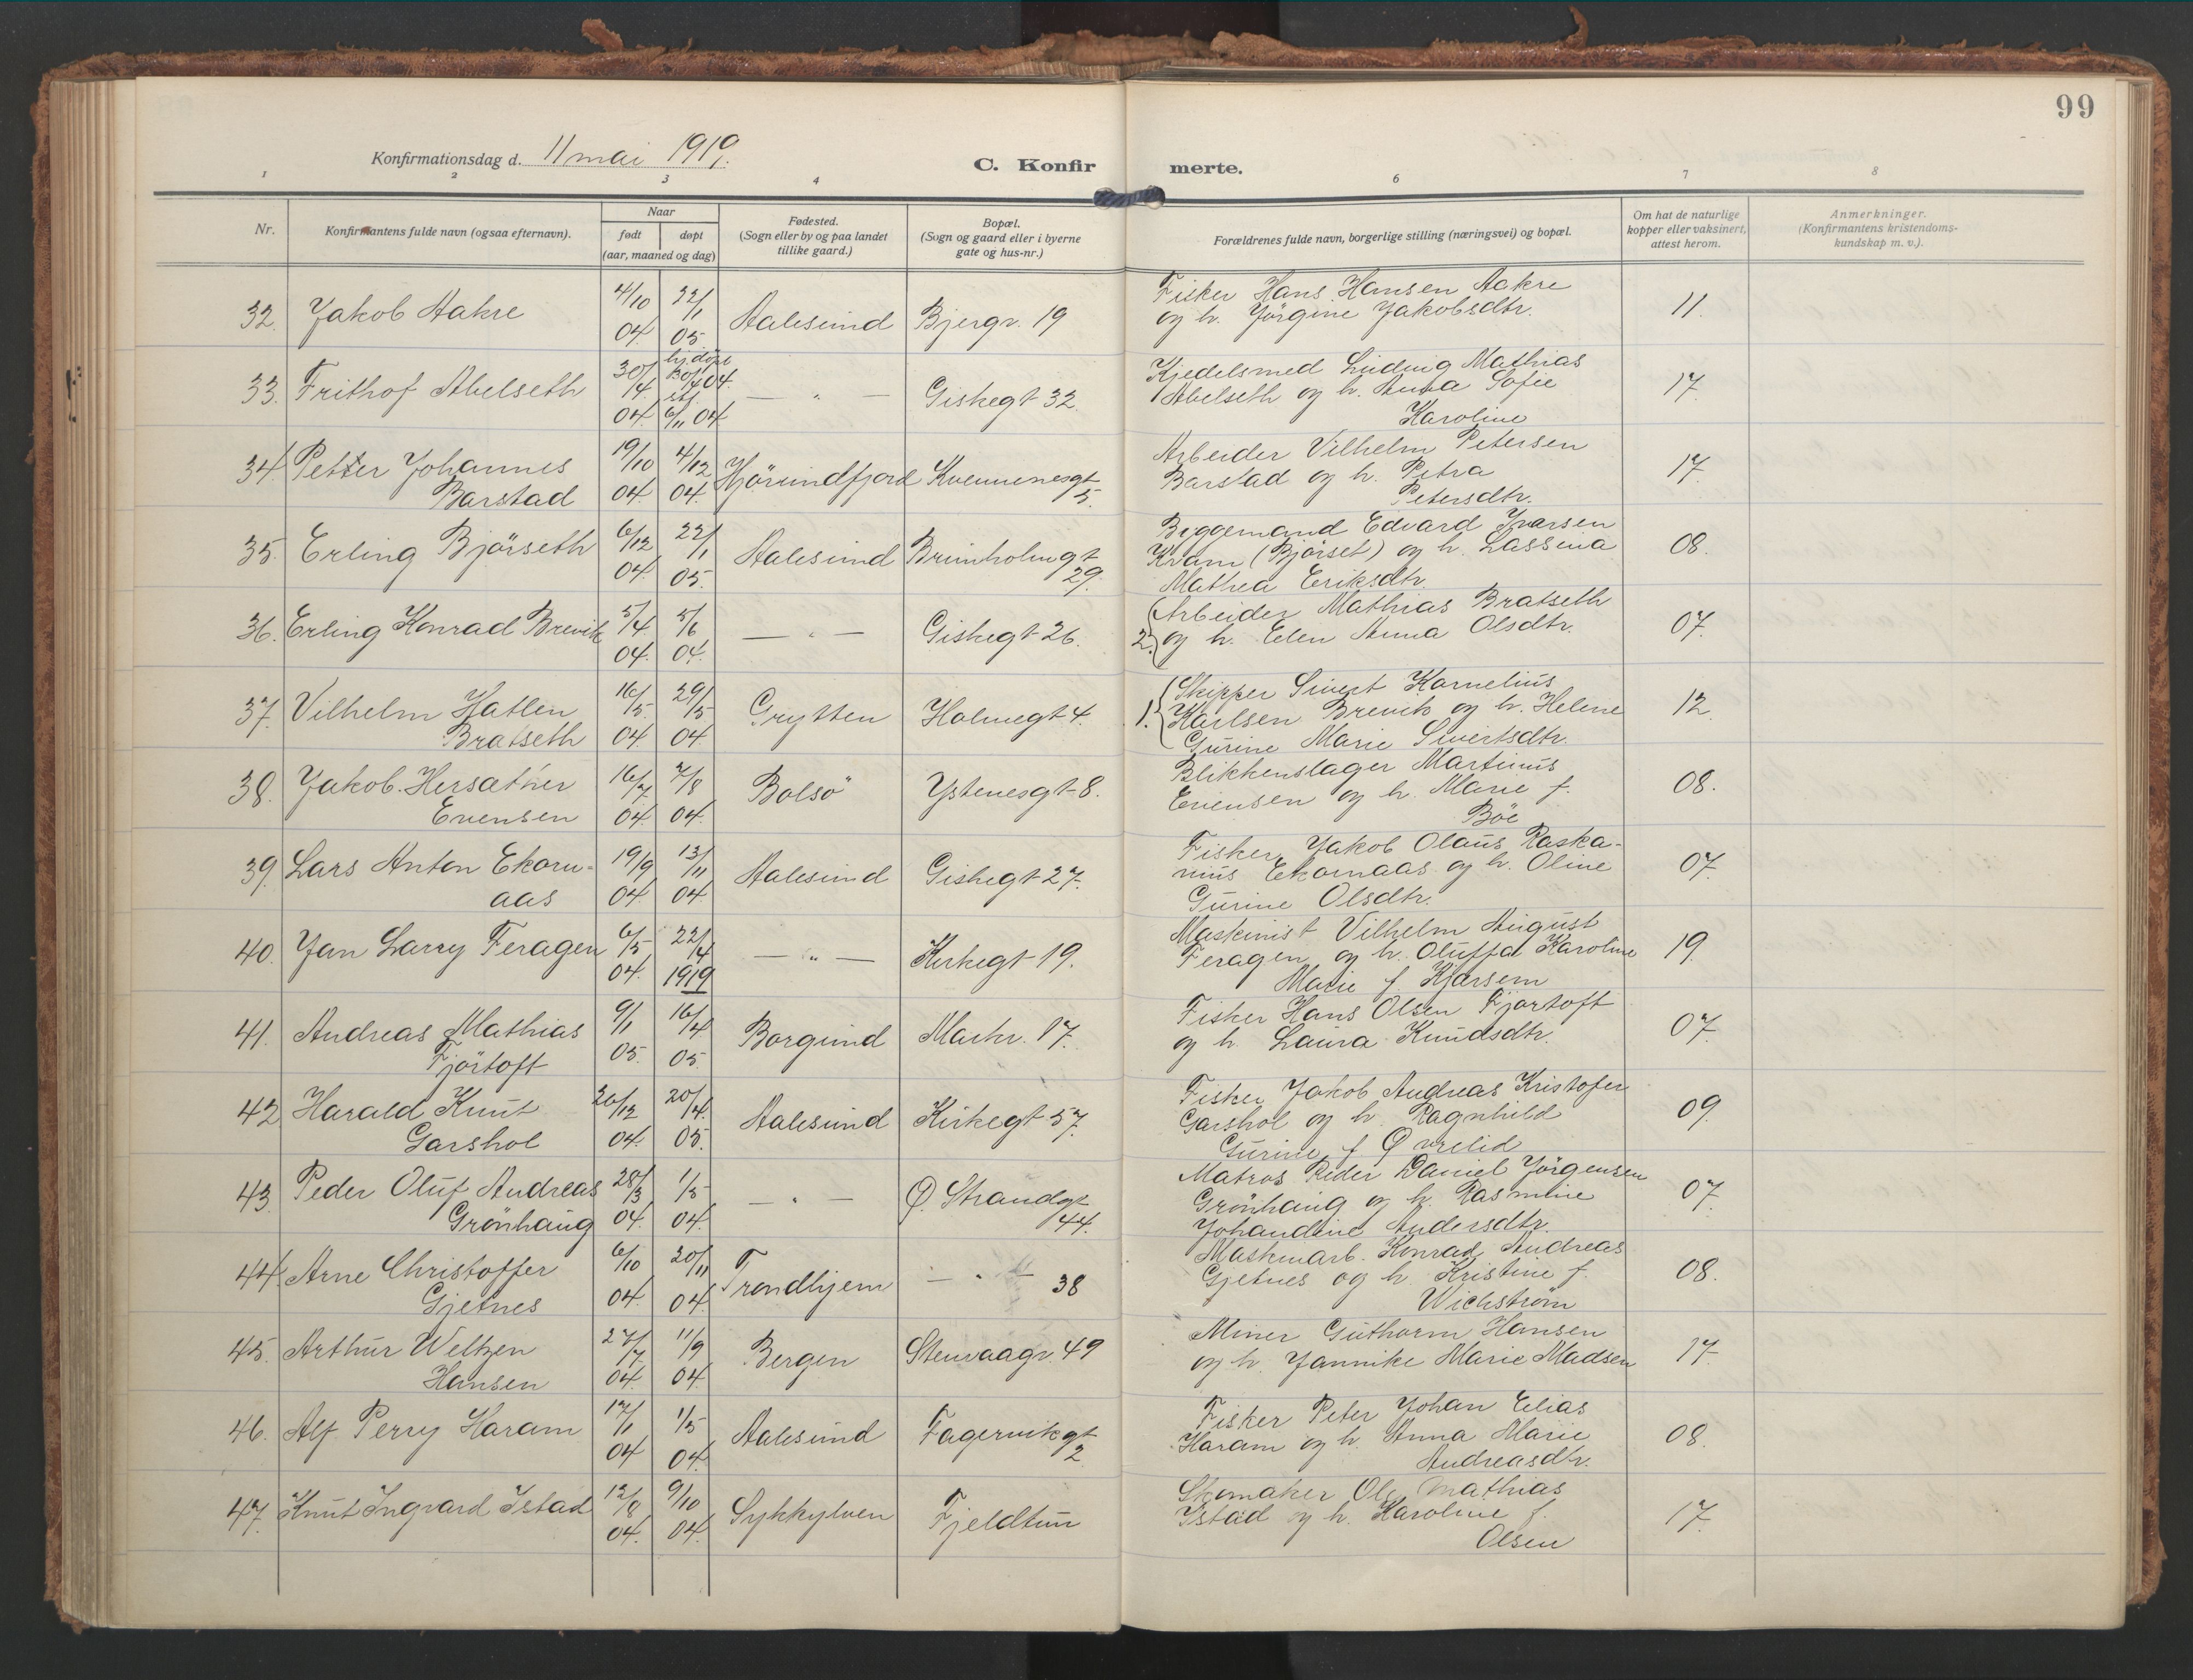 99
Konfirmationsdag d. 11 mai 1919.
C. Konfirmerte.
1 2 3 4 6 7 8
Nr.
Konfirmantens fulde navn (ogsaa efternavn).
Naar
født
døpt
(aar, maaned og dag)
Fødested.
(Sogn eller by og paa landet
tillike gaard.)
Bopæl.
(Sogn og gaard eller i byerne
gate og hus-nr.)
Forældrenes fulde navn, borgerlige stilling (næringsvei) og bopæl.
Om hat de naturlige
kopper eller vaksinert,
attest herom.
Anmerkninger.
(Konfirmantens kristendoms-
kundskap m. v.).
32. Jakob Aakre 4/10 04. 22/1 05. Aalesund Bjergv. 19
Fisker Hans Hansen Aakre
og h. Jörgine Jakobsdtr.
11.
33. Frithof Abelseth 30/4 04 hjdöpt 30/4 04. stf. 6/11 04 — " — Giskegt 32.
Kjedelsmed Ludvig Mathias
Abelseth og h. Anna Sofie
Karoline
17.
34. Petter Johannes
Barstad 19/10 04. 4/12 04. Hjörundfjord Kvennenesgt
5.
Arbeider Vilhelm Petersen
Barstad og h. Petra
Petersdtr.
17.
35. Erling Björseth 6/12 04. 22/1 05. Aalesund Brunholmgt
29.
Byggemand Edvard Ivarsen
Kvam (Bjørset) og h. Lassina
Mathea Eriksdtr.
08.
36. Erling Konrad Brevik 5/4 04. 5/6 04. — " — Giskegt 26.
Arbeider Mathias Bratseth
2. og h. Elen Anna Olsdtr.
07.
37. Vilhelm Hatlen
Bratseth 16/5 04. 29/5 04. Grytten Holmegt 4.
Skipper Sivert Kornelius
1. Karlsen Brevik og h. Helene
Gurine Marie Sivertsdtr.
12.
38. Jakob Hersæther
Evensen 16/7 04. 7/8 04. Bolsö Ystenesgt 8.
Blikkenslager Martinus
Evensen og h. Marie f.
Böe
08.
39. Lars Anton Ekorn-
aas 19/9 04. 13/11 04. Aalesund Giskegt 27.
Fisker Jakob Olaus Raska-
nius Ekornaas og h. Oline
Gurine Olsdtr.
07.
40. Jan Larry Feragen 6/5 04. 22/4 1919 — " — Kirkegt 19.
Maskinist Vilhelm August
Feragen og h. Oluffa Karoline
Marie f. Kjarsem
19.
41. Andreas Mathias
Fjörtoft 9/1 05. 16/4 05. Borgund Markv. 17.
Fisker Hans Olsen Fjørtoft
og h. Laura Knudsdtr.
07.
42. Harald Knut
Garshol 26/12 04. 20/4 05. Aalesund Kirkegt 57.
Fisker Jakob Andreas Kristofer
Garshol og h. Ragnhild
Gurine f. Øvrelid
09.
43. Peder Oluf Andreas
Grönhaug 28/3 04. 1/5 04. — " — Ø. Strandgt
44.
Matros Peder Daniel Jörgensen
Grönhaug og h. Rasmine
Johandine Andersdtr.
07.
44. Arne Christoffer
Gjetnes 6/10 04. 20/11 04. Trondhjem — " — 38
Maskinarb. Konrad Andreas
Gjetnes og h. Kristine f.
Wichstrøm
08.
45. Arthur Weltzen
Hansen 27/7 04. 11/9 04. Bergen Stenvaagv. 49
Miner Guthorm Hansen
og h. Jannike Marie Madsen
17.
46. Alf Perry Haram 17/1 04 1/5 04. Aalesund Fagervikgt
2
Fisker Peter Johan Elias
Haram og h. Anna Marie
Andreasdtr.
08.
47. Knut Ingvard Istad 12/8 04. 9/10 04. Sykkylven Fjeldtun
Skomaker Ole Mathias
Istad og h. Karoline f.
Olsen
17.